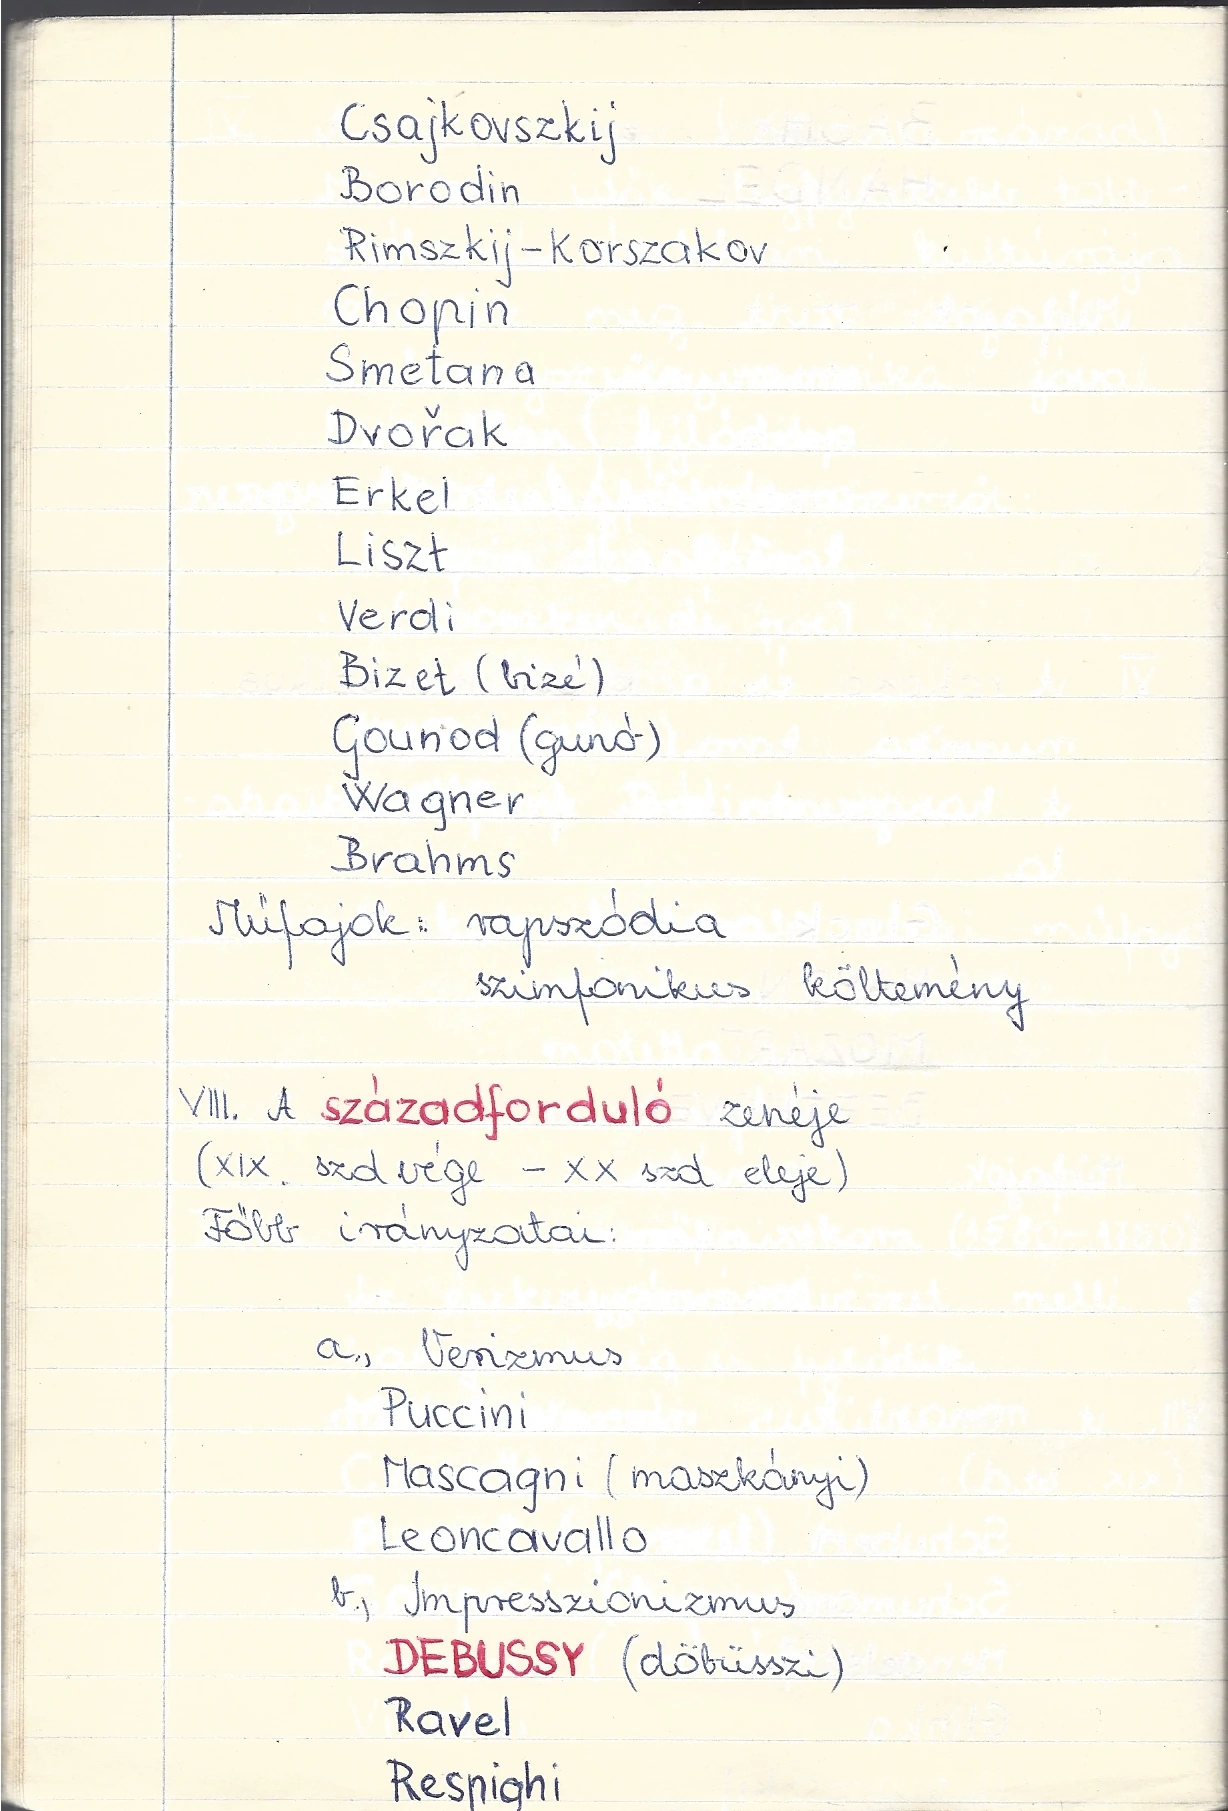 Csajkovszkij
Borodin
Rimszkij-Korszakov
Chopin
Smetana
Dvořak
Erkel
Liszt
Verdi
Bizet (bizé)
Gounod (gunó)
Wagner
Brahms
Műfajok: rapszódia
szimfonikus költemény
VIII. A századforduló zenéje
(XIX. szd vége - XX szd eleje)
Főbb irányzatai:
a., Verizmus
Puccini
Mascagni (maszkányi)
Leoncavallo
b., Impresszionizmus
DEBUSSY (döbüsszi)
Ravel
Respighi